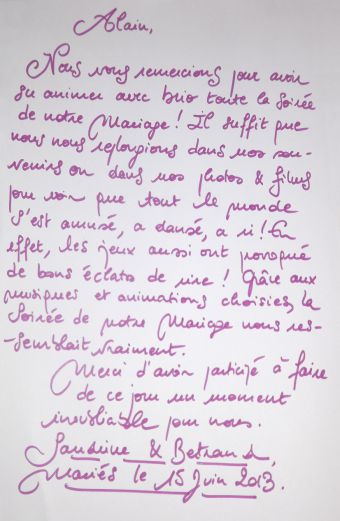 Alain,
Nous vous remercions pour avoir
su animer avec brio toute la soirée
de notre Mariage ! Il suffit que
nous nous replongions dans nos sou-
venirs ou dans nos photos & films
pour voir que tout le monde
s'est amusé, a dansé, a ri ! En
effet, les jeux aussi ont provoqué
de bons éclats de rire ! Grâce aux
musiques et animations choisies, la
Soirée de notre Mariage nous res-
-semblait vraiment.
Merci d'avoir participé à faire
de ce jour un moment
inoubliable pour nous.
Sandrine & Bertrand,
Mariés le 15 Juin 2013.